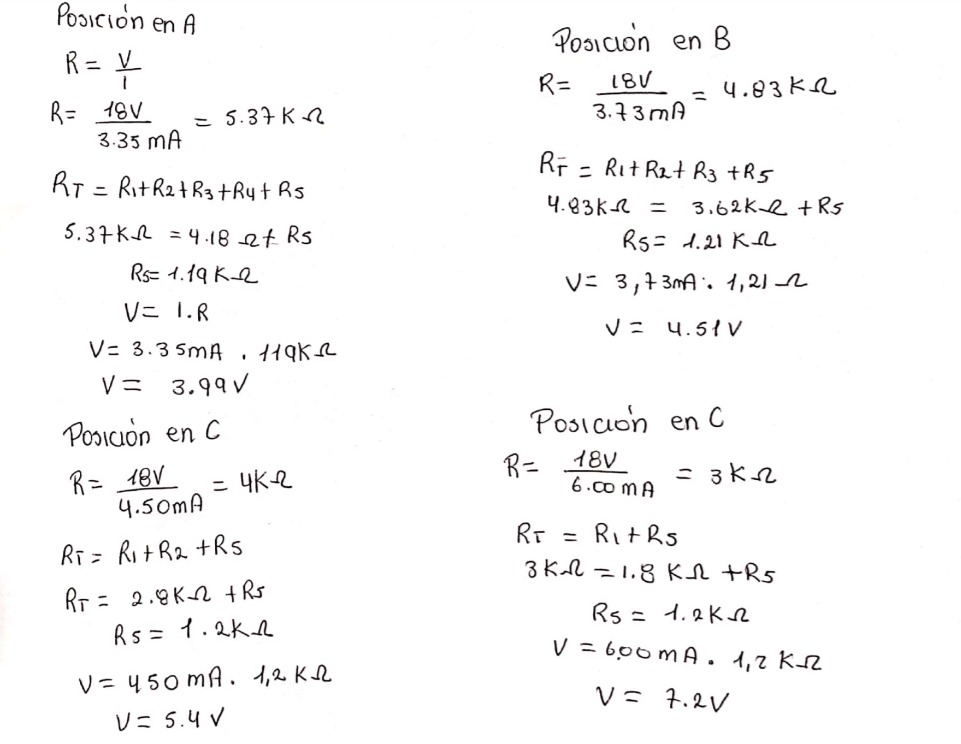 Posición en A
R = V/I
R = 18V/3.35 mA = 5.37 K Ω
RT = R1+R2+R3+R4+R5
5.37KΩ = 4.18 Ω+ R5
R5= 1.19 KΩ
V= I.R
V= 3.35mA . 119KΩ
V= 3.99V
Posición en B
R= 18V/3.73mA = 4.83KΩ
RT = R1+R2+R3+R5
4.83KΩ = 3.62KΩ +R5
R5= 1.21 KΩ
V= 3,73mA. 1,21 Ω
V= 4.51V
Posición en C
R= 18V/4.50mA = 4KΩ
RT= R1+R2+R5
RT= 2.8KΩ +R5
R5= 1.2KΩ
V= 450 mA. 1,2 KΩ
V= 5.4 V
Posición en C
R= 18V/6.00mA = 3KΩ
RT = R1+R5
3KΩ =1.8 KΩ +R5
R5= 1.2KΩ
V =6,00mA. 1,2 KΩ
V= 7.2V